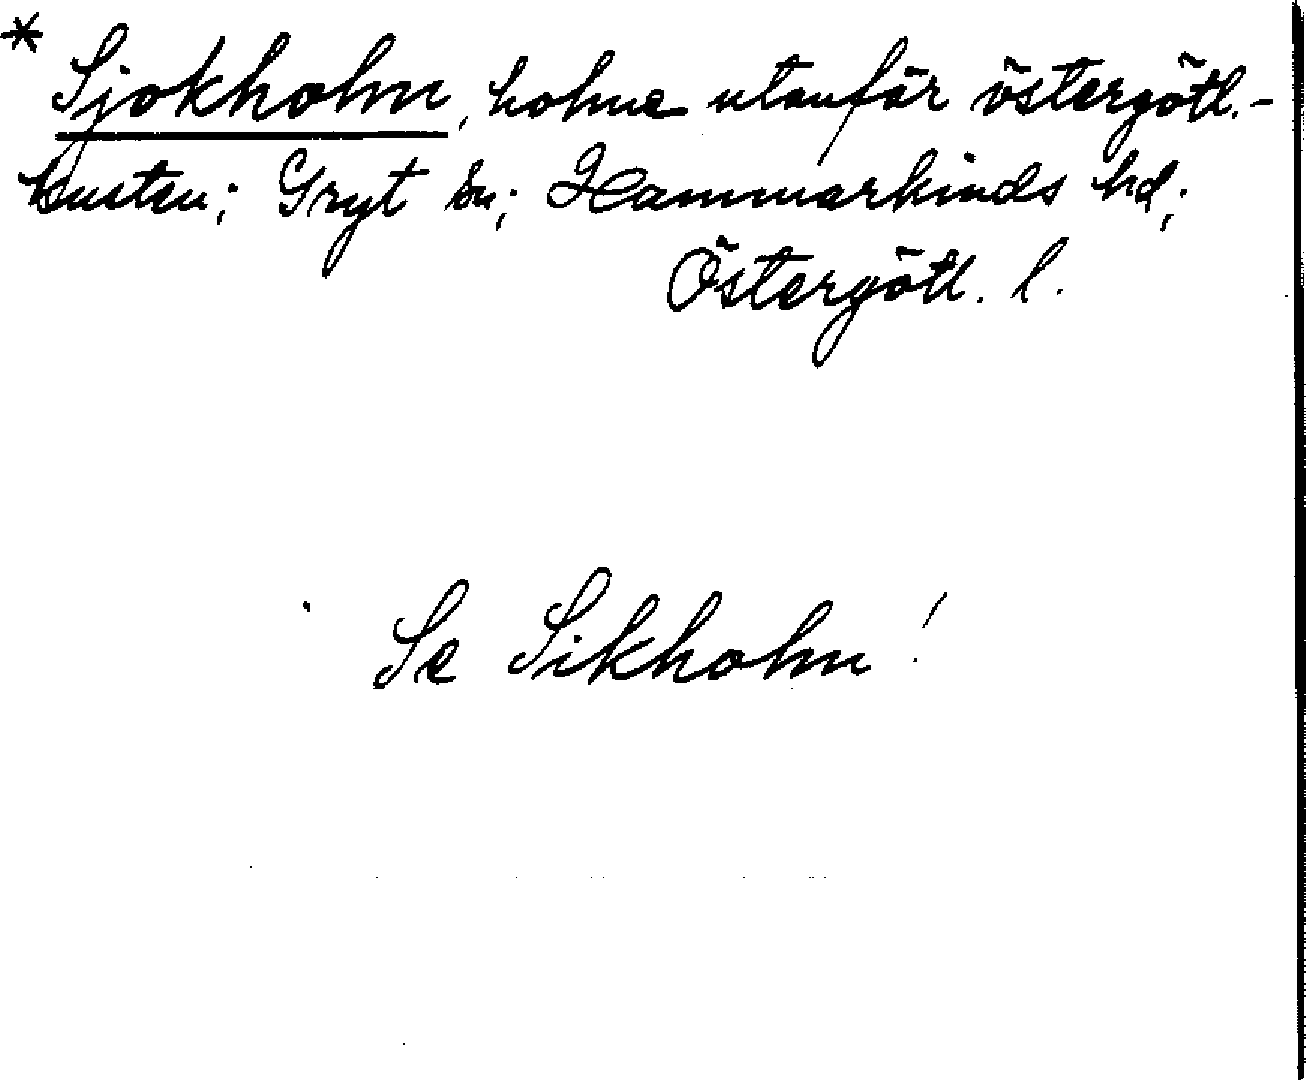 * Sjokholm, holme utanför östergötl.-
kusten; Gryt sn; Hammarkinds hd;
Östergötl. l.
Se Sikholm!